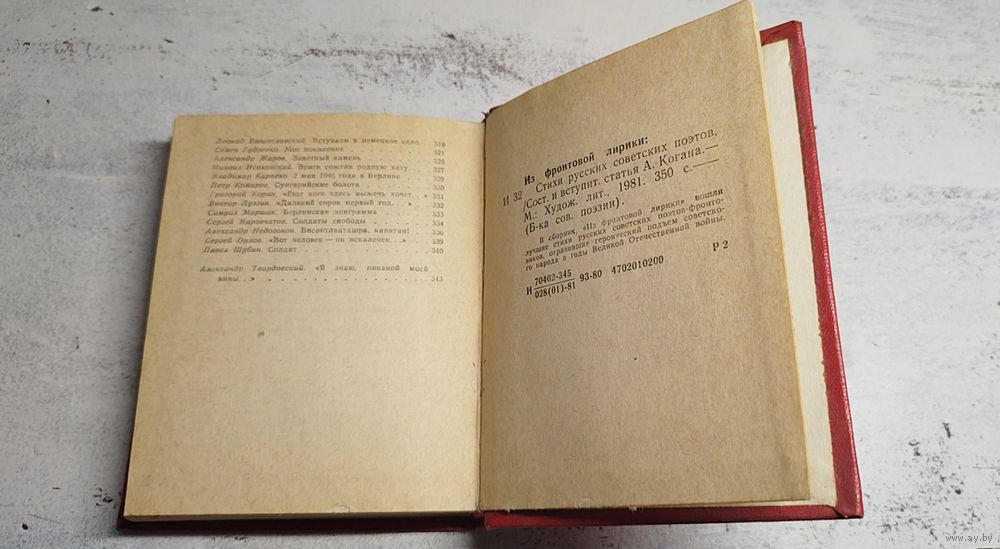 Леонид Вышеславский. Вступаем в немецкое село. 319
Семен Гудзенко. Мое поколение 321
Александр Жаров. Заветный камень 325
Михаил Исаковский. Враги сожгли родную хату. 327
Владимир Карпеко. 2 мая 1945 года в Берлине 329
Петр Комаров. Сунгарийские болота 330
Григорий Корин. «Еще кого здесь выжечь хочет...» 331
Виктор Лузгин. «Далекий сорок первый год...» 332
Самуил Маршак. Берлинская эпиграмма 333
Сергей Наровчатов. Солдаты свободы 334
Александр Недогонов. Висонтлаташра, капитан! 336
Сергей Орлов. «Вот человек — он искалечен...» 339
Павел Шубин. Солдат 340
Александр Твардовский. «Я знаю, никакой моей
вины...» 343
Из фронтовой лирики:
И 32 Стихи русских советских поэтов.
(Сост. и вступит. статья А. Когана.—
М.: Худож. лит., 1981. 350 с.—
(Б-ка сов. поэзии).
В сборник «Из фронтовой лирики» вошли
лучшие стихи русских советских поэтов-фронто-
виков, отразившие героический подъем советско-
го народа в годы Великой Отечественной войны.
И 70402-345
028(01)-81 93-80 4702010200
Р 2
www.ay.by